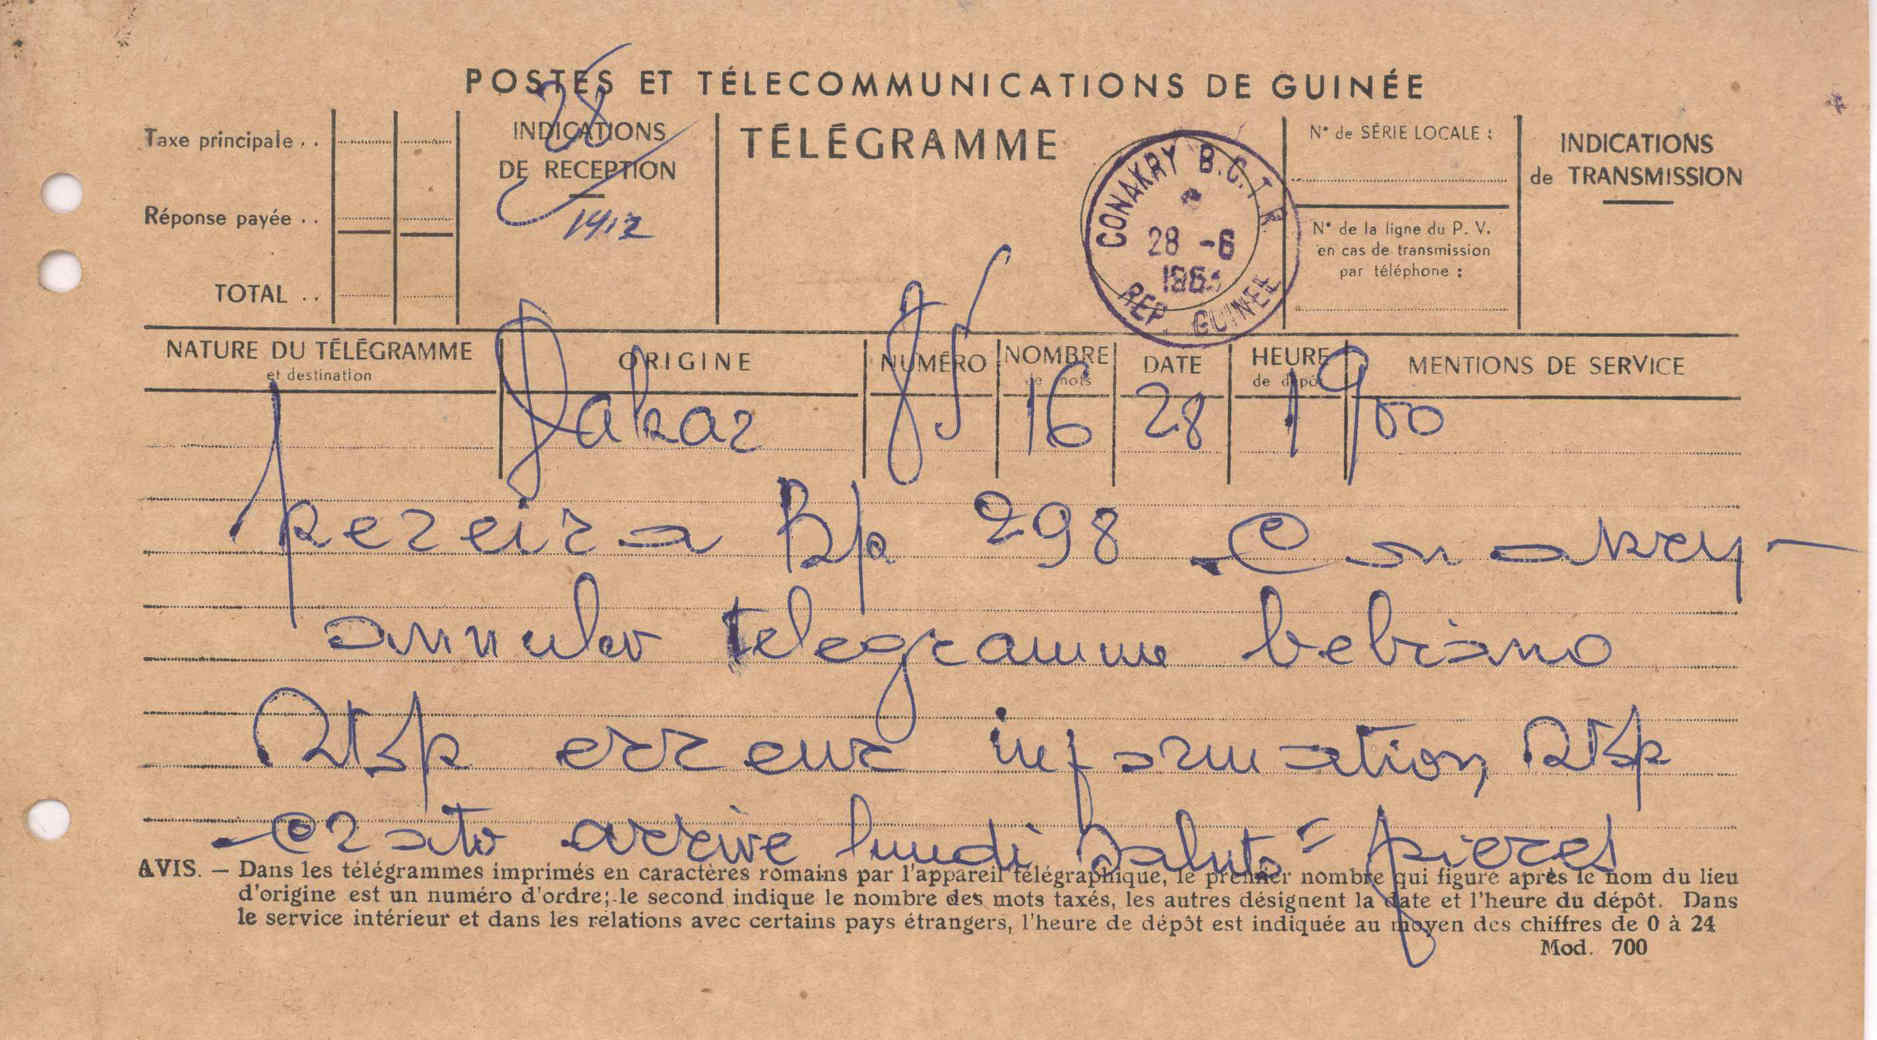 POSTES ET TÉLECOMMUNICATIONS DE GUINÉE
Taxe principale . .
Réponse payée . .
TOTAL . .
INDICATIONS
DE RECEPTION
28
1912
TÉLÉGRAMME
CONAKRY B.C.T.R
28 -6
REP. GUINEE
N° de SÉRIE LOCALE :
N° de la ligne du P. V.
en cas de transmission
par téléphone :
INDICATIONS
de TRANSMISSION
NATURE DU TÉLÉGRAMME
et destination
ORIGINE
NUMÉRO
NOMBRE
de mots
DATE
HEURE
de dépôt
MENTIONS DE SERVICE
Dakar 85 16 28 1900
pereira Bp 298 Conakry -
annuler telegramme bebiano
stop erreur information stop
crato arrive lundi saluts = pieres
AVIS. — Dans les télégrammes imprimés en caractères romains par l'appareil télégraphique, le premier nombre qui figure après le nom du lieu
d'origine est un numéro d'ordre; le second indique le nombre des mots taxés, les autres désignent la date et l'heure du dépôt. Dans
le service intérieur et dans les relations avec certains pays étrangers, l'heure de dépôt est indiquée au moyen des chiffres de 0 à 24
Mod. 700